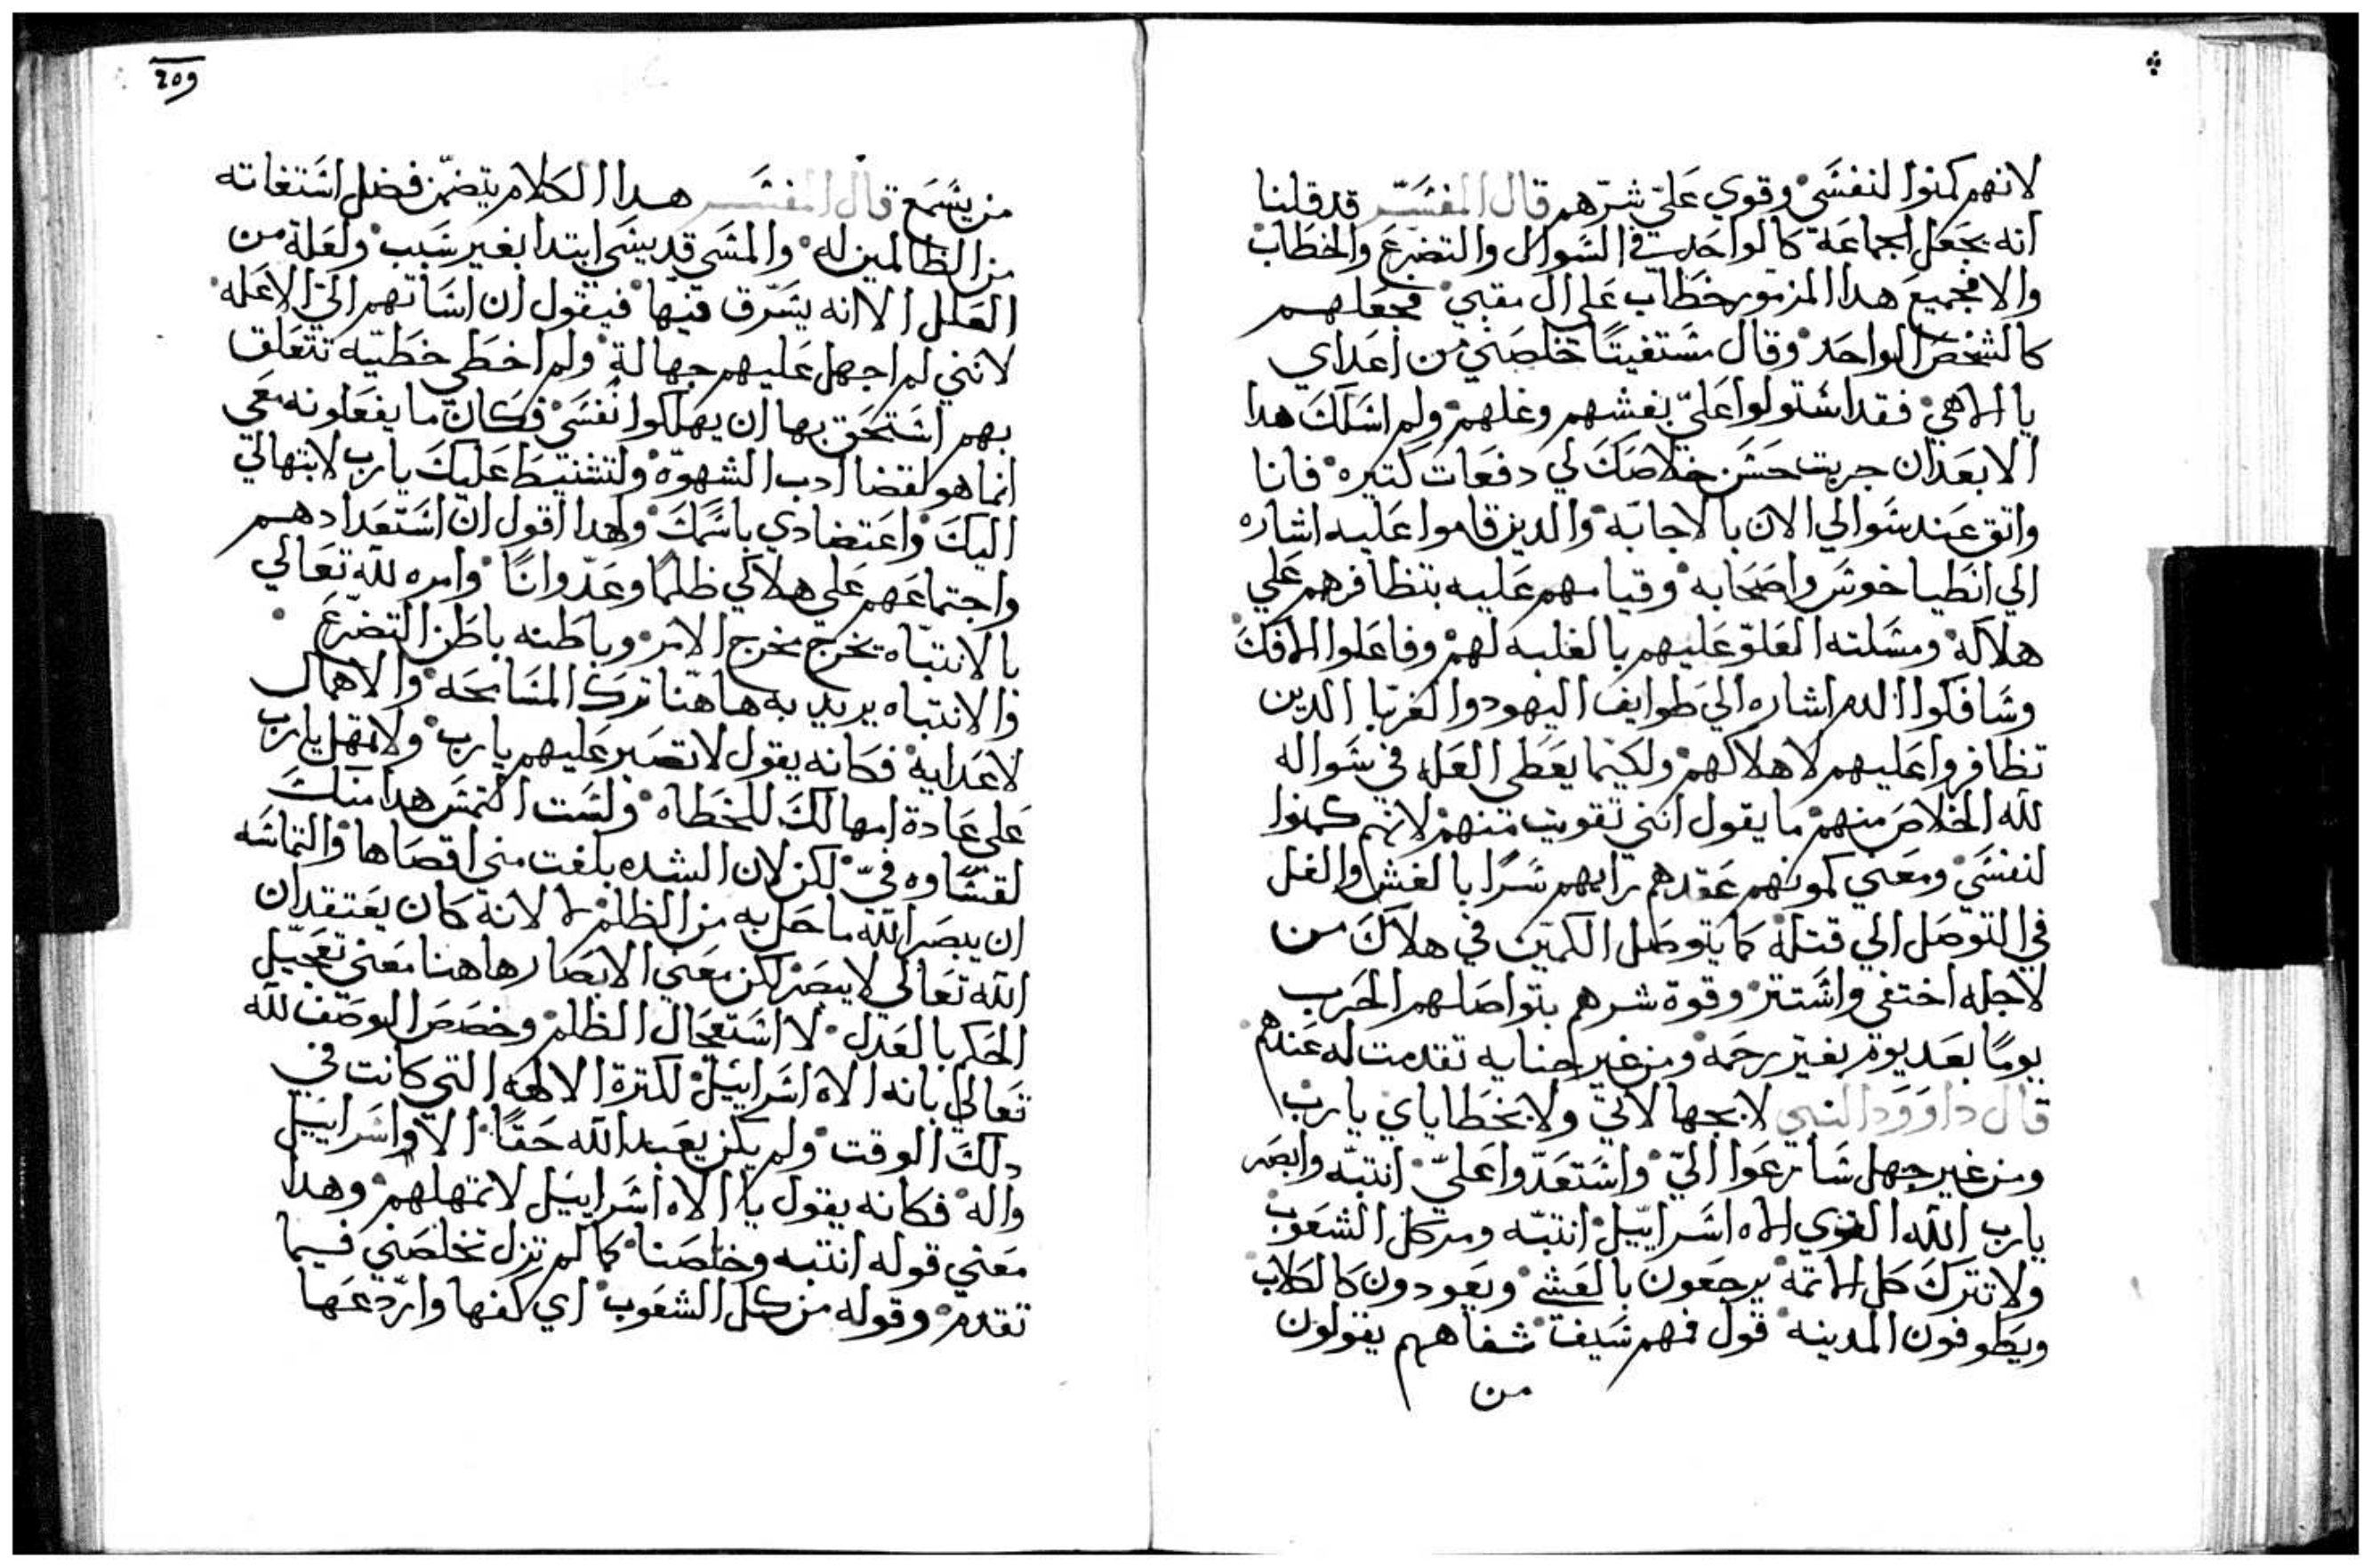 لانهم كمنوا لنفسي وقوي علي شرهم قال المفسر قد قلنا
انه يجعل الجماعة كالواحد في السوال والتضرع والخطاب
والا فجميع هدا المزمور خطاب علي ال مقبي فجعلهم
كالشخص الواحد وقال مستغيتًا خلصني من اعداي
يا الاهي فقد استولوا عليّ بغشهم وغلهم ولم اسلك هدا
الا بعد ان جربت حسن خلاصك لي دفعات كتيره فانا
واتق عند سوالي الان بالاجابه والدين قاموا عليه اشاره
الي انطياخوس واصحابه وقيامهم عليه بتظافرهم علي
هلاكه ومسلته العلوّ عليهم بالغلبه لهم وفاعلوا الافك
وسافكوا الدم اشاره الي طوايف اليهود والغربا الدين
تظافروا عليهم لاهلاكهم ولكيما يعطي العله في سواله
لله الخلاص منهم ما يقول انني تقويت منهم لانهم كمنوا
لنفسي ومعني كمونهم عقدهم رايهم سرًا بالغش والغل
في التوصل الي قتله كما يتوصل الكمين في هلاك من
لاجله اختفي واستتر وقوة شرهم بتواصلهم الحرب
يومًا بعد يوم بغير رحمه ومن غير جنايه تقدمت له عندهم
قال داوود النبي لا بجهالاتي ولا بخطاياي يا رب
ومن غير جهل سارعوا اليّ واستعدّوا عليّ انتبه وابصر
يا رب الله القوي الاه اسراييل انتبه ومر كل الشعوب
ولا تترك كل الاتمه يرجعون بالعشي ويعودون كالكلاب
ويطوفون المدينه قول فهم سيف شفاههم يقولون
من
209
من يسمع قال المفسر هدا الكلام يتضمن فضل استغاته
من الظالمين له والمسي قد يسي ابتدا بغير سبب ولعلة من
العلل الا انه يسرق فيها فيقول ان اساتهم اليّ لا عله
لانني لم اجهل عليهم جهالة ولم اخطي خطيّه تتعلق
بهم استحق بها ان يهلكوا نفسي فكان ما يفعلونه معي
انما هو لقضا ادب الشهوّه ولتشنيط عليك يا رب لابتهالي
اليك واعتضادي باسمك ولهدا اقول ان استعدادهم
واجتماعهم علي هلاكي ظلمًا وعدوانًا وامره لله تعالي
بالانتباه يخرج مخرج الامر وباطنه باطن التضرع
والانتباه يريد به هاهنا ترك المسامحه والاهمال
لاعدايه فكانه يقول لا تصبر عليهم يا رب ولا تمهل يا رب
علي عادة امهالك للخطاه ولست التمس هدا منك
لقساوه فيّ لكن لان الشده بلغت مني اقصاها والتماسه
ان يبصر الله ما حل به من الظلم لا لانه كان يعتقد ان
الله تعالي لا يبصر لكن معني الابصار هاهنا معني تعجيل
الحكم بالعدل لا استعجال الظلم وخصص الوصف لله
تعالي بانه الاه اسراييل لكترة الالهه التي كانت في
دلك الوقت ولم يكن يعبد الله حقًا الا واسراييل
واله فكانه يقول يا الاه اسراييل لا تمهلهم وهدا
معني قوله انتبه وخلصنا كما لم تزل تخلصني فيما
تقدم وقوله من كل الشعوب اي كفها واردعها